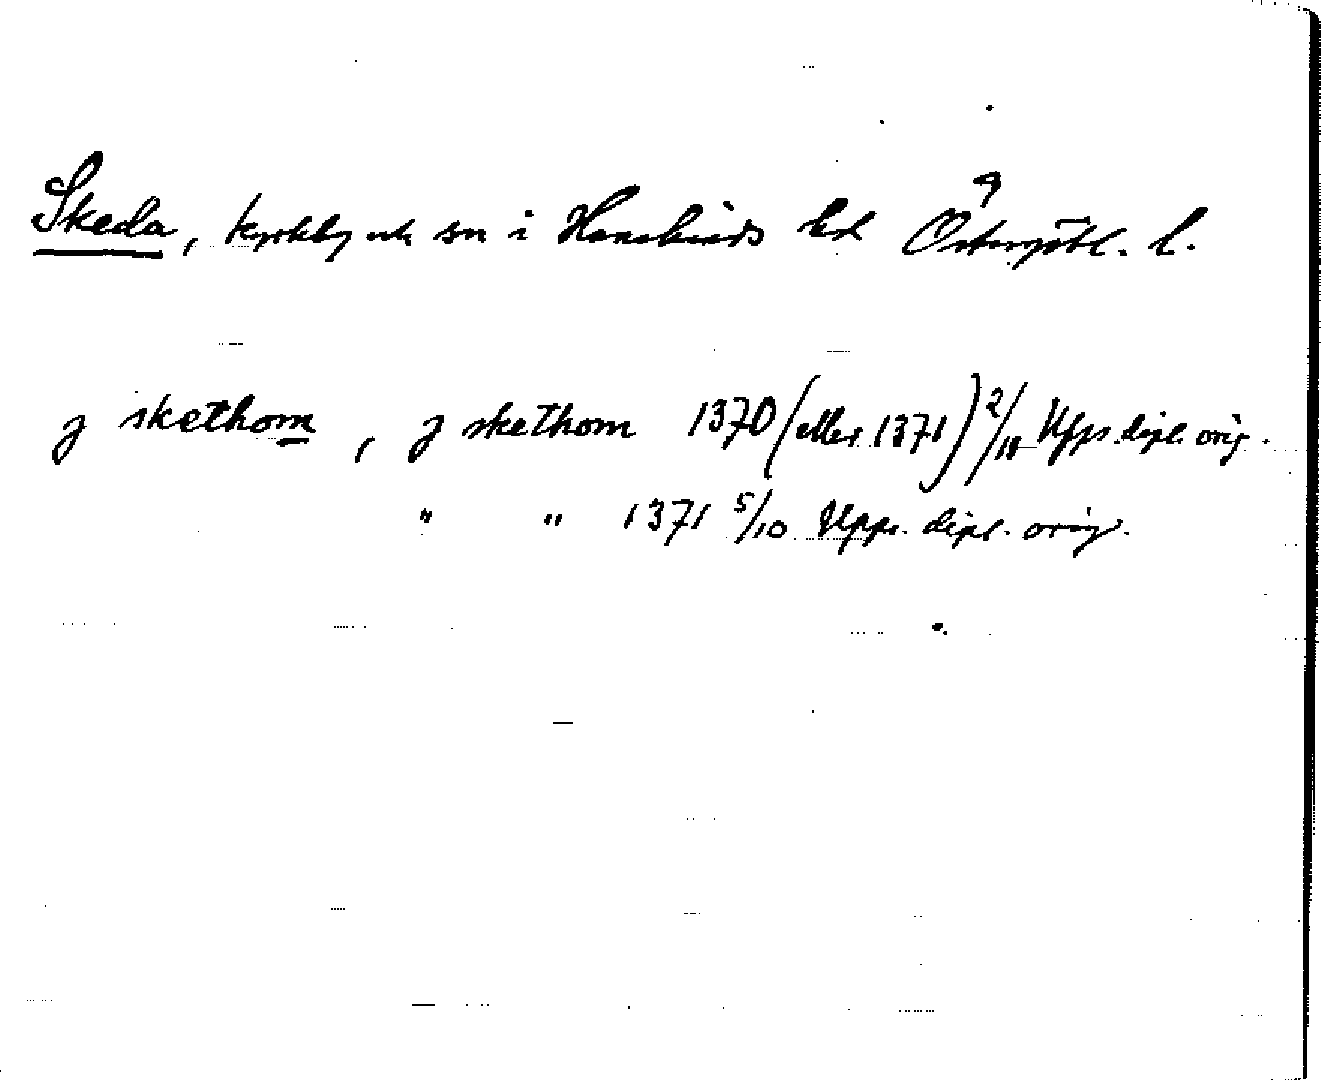 Skeda, kyrkby och sn i Hanekinds hd Östergötl. l.
j skethom, j skethom 1370 (eller 1371) 2/10 Upps. dipl. orig.
" " 1371 5/10 Upps. dipl. orig.